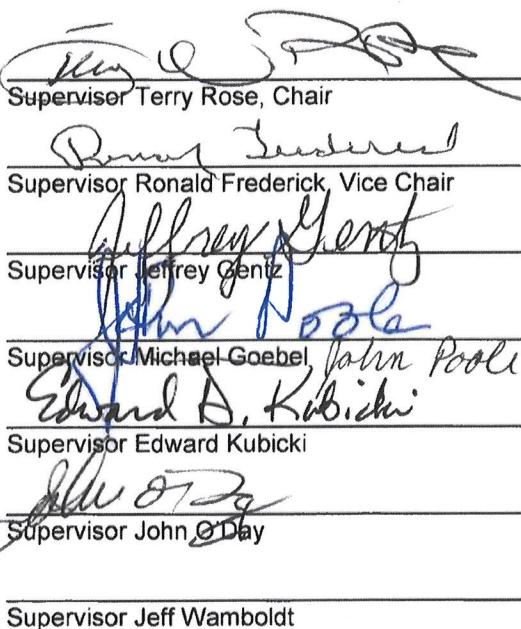 Terry Rose
Supervisor Terry Rose, Chair
Ronald Frederick
Supervisor Ronald Frederick, Vice Chair
Jeffrey Gentz
Supervisor Jeffrey Gentz
John Poole
Supervisor Michael Goebel John Poole
Edward D. Kubicki
Supervisor Edward Kubicki
John O'Day
Supervisor John O'Day
Supervisor Jeff Wamboldt